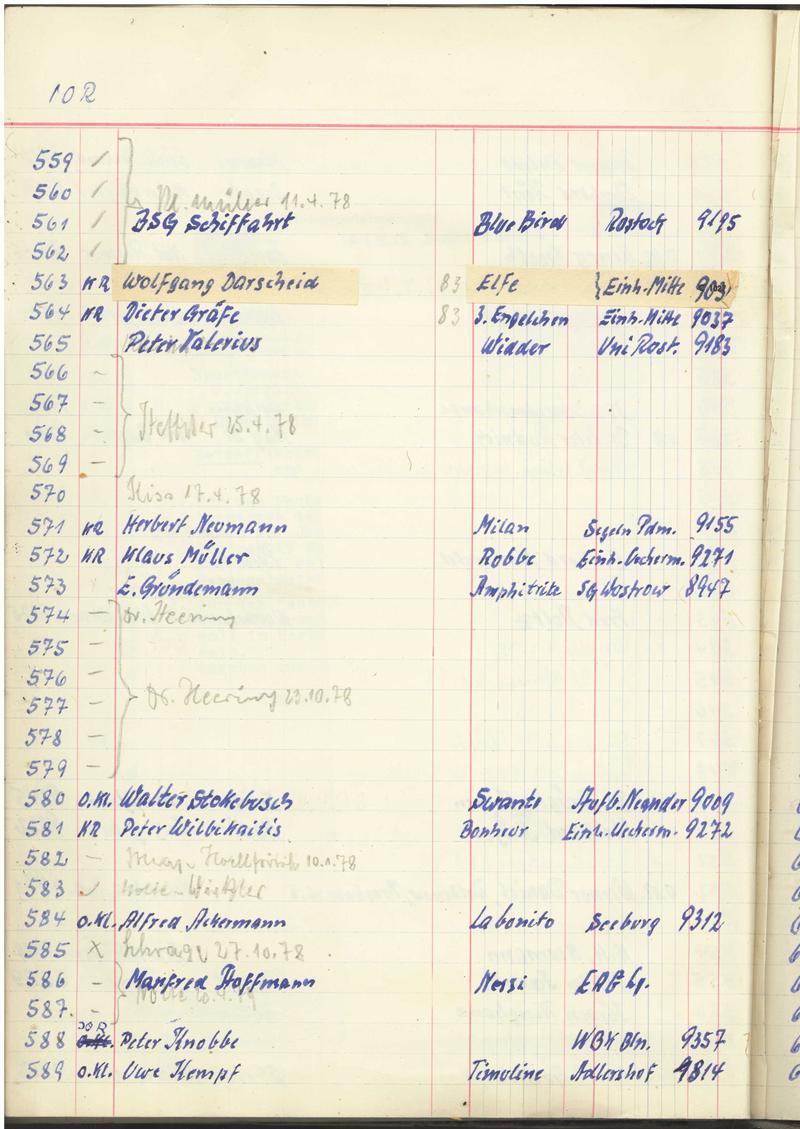 10R
559 /
560 / Kl. Müller 11.4.78
561 / BSG Schiffahrt Blue Bird Rostock 9195
562 /
563 KR Wolfgang Darscheid 83 Elfe Einh.-Mitte
564 KR Dieter Gräfe 83 3. Engelchen Einh.-Mitte 9037
565 Peter Valerius Widder Uni Rost. 9183
566 –
567 –
568 – 25.4.78
569 –
570 17.4.78
571 KR Herbert Neumann Milan Segeln Pdm. 9155
572 KR Klaus Müller Robbe Einh.-Ueckerm. 9271
573 E. Gründemann Amphitrite SG Wostrow 8947
574 – Dr. Heering
575 –
576 –
577 – Dr. Heering 23.10.78
578 –
579 –
580 O.Kl. Walter Stokebusch Swanto Aufb. Neander 9009
581 KR Peter Wilbikaitis Bonheur Einh.-Ueckerm. 9272
582 – 10.1.78
583
584 O.Kl. Alfred Ackermann Labonito Seeburg 9312
585 X 27.10.78
586 – Manfred Hoffmann Nessi EAG
587. –
588 Peter Knobbe WBK Bln. 9357
589 O.Kl. Uwe Kempf Timoline Adlershof 9814